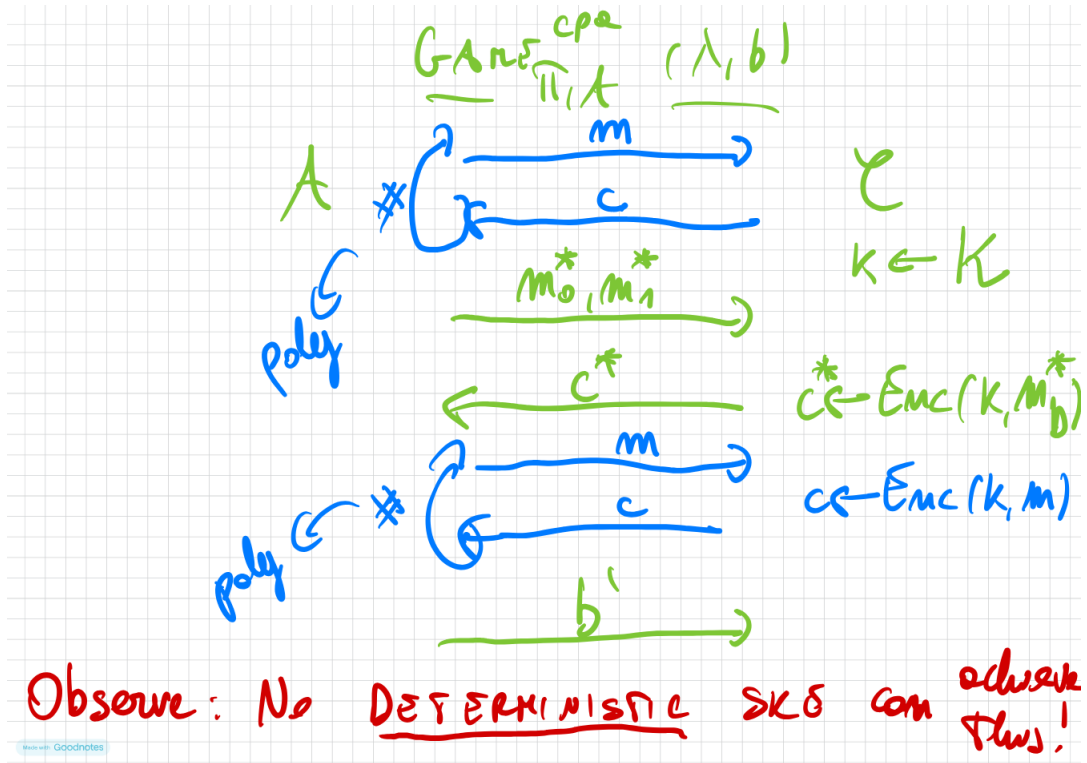 GAME^{cpa}_{Π,A} (λ, b)
m
A # c C
k ← K
m_0^*, m_1^*
poly
c^* c^* ← Enc(k, m_b^*)
m
# c c ← Enc(k, m)
poly
b'
Observe: No DETERMINISTIC SKE can achieve this!
Made with Goodnotes